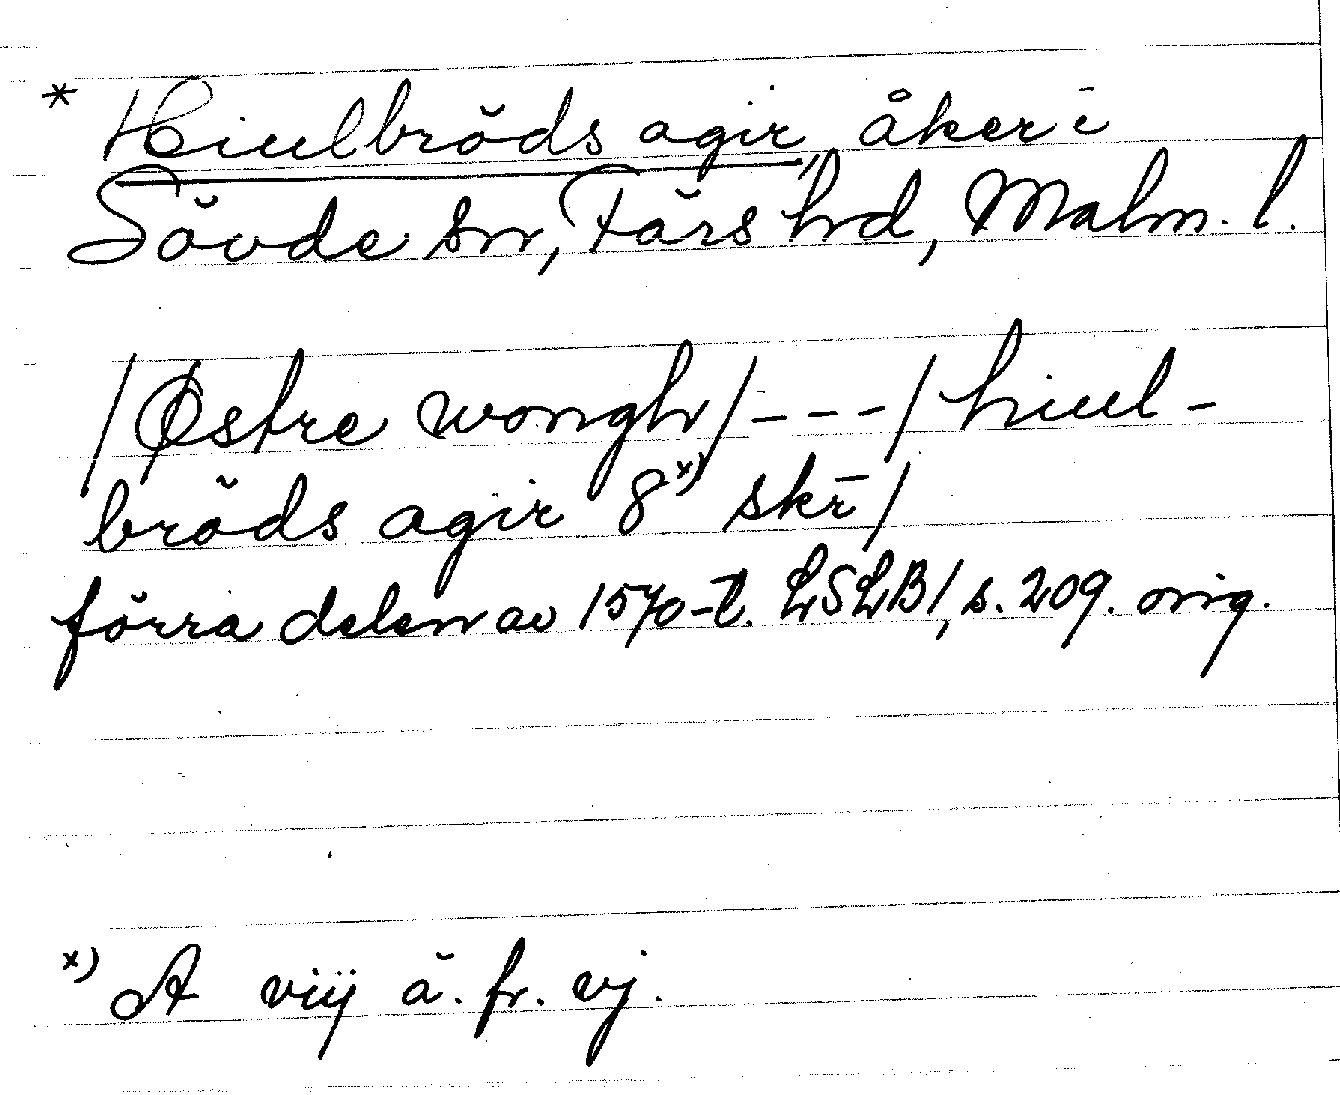 * Hiulbröds agir, åker i
Sövde sn, Färs hd, Malm. l.
/Østre wongh/---/hiul-
bröds agir 8ˣ⁾ skr̄/
förra delen av 1570-t. LSLB1, s. 209. orig.
ˣ⁾ A viij ä. fr. vj.